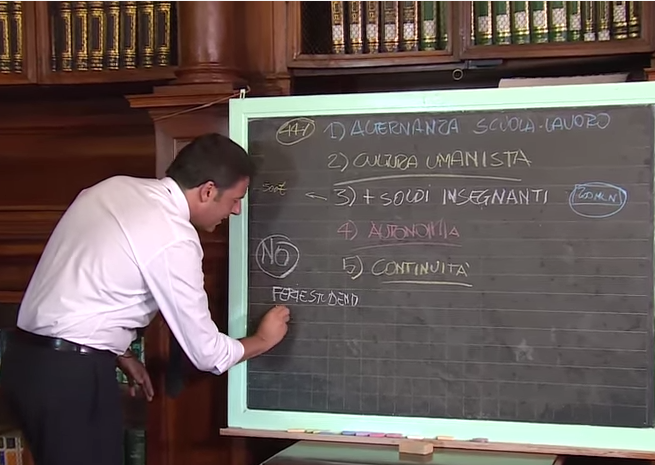 447 1) ALTERNANZA SCUOLA-LAVORO
2) CULTURA UMANISTA
← 3) + SOLDI INSEGNANTI
4) AUTONOMIA
NO
5) CONTINUITA'
FERIE STUDENTI